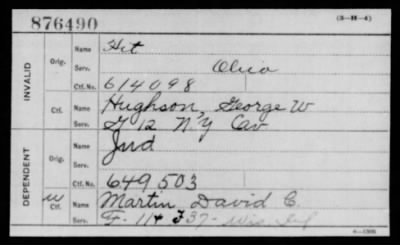 876490 (3-H-4)
INVALID
Orig. Name Hit
Serv. Olico
Ctf. No. 614098
Ctf. Name Hughson, George W
Serv. G 12 N.Y Cav
DEPENDENT
Orig. Name Ind
Serv.
Ctf. No. 649503
W Ctf. Name Martin, David C.
Serv. F- 11 & 37- Wis. Inf